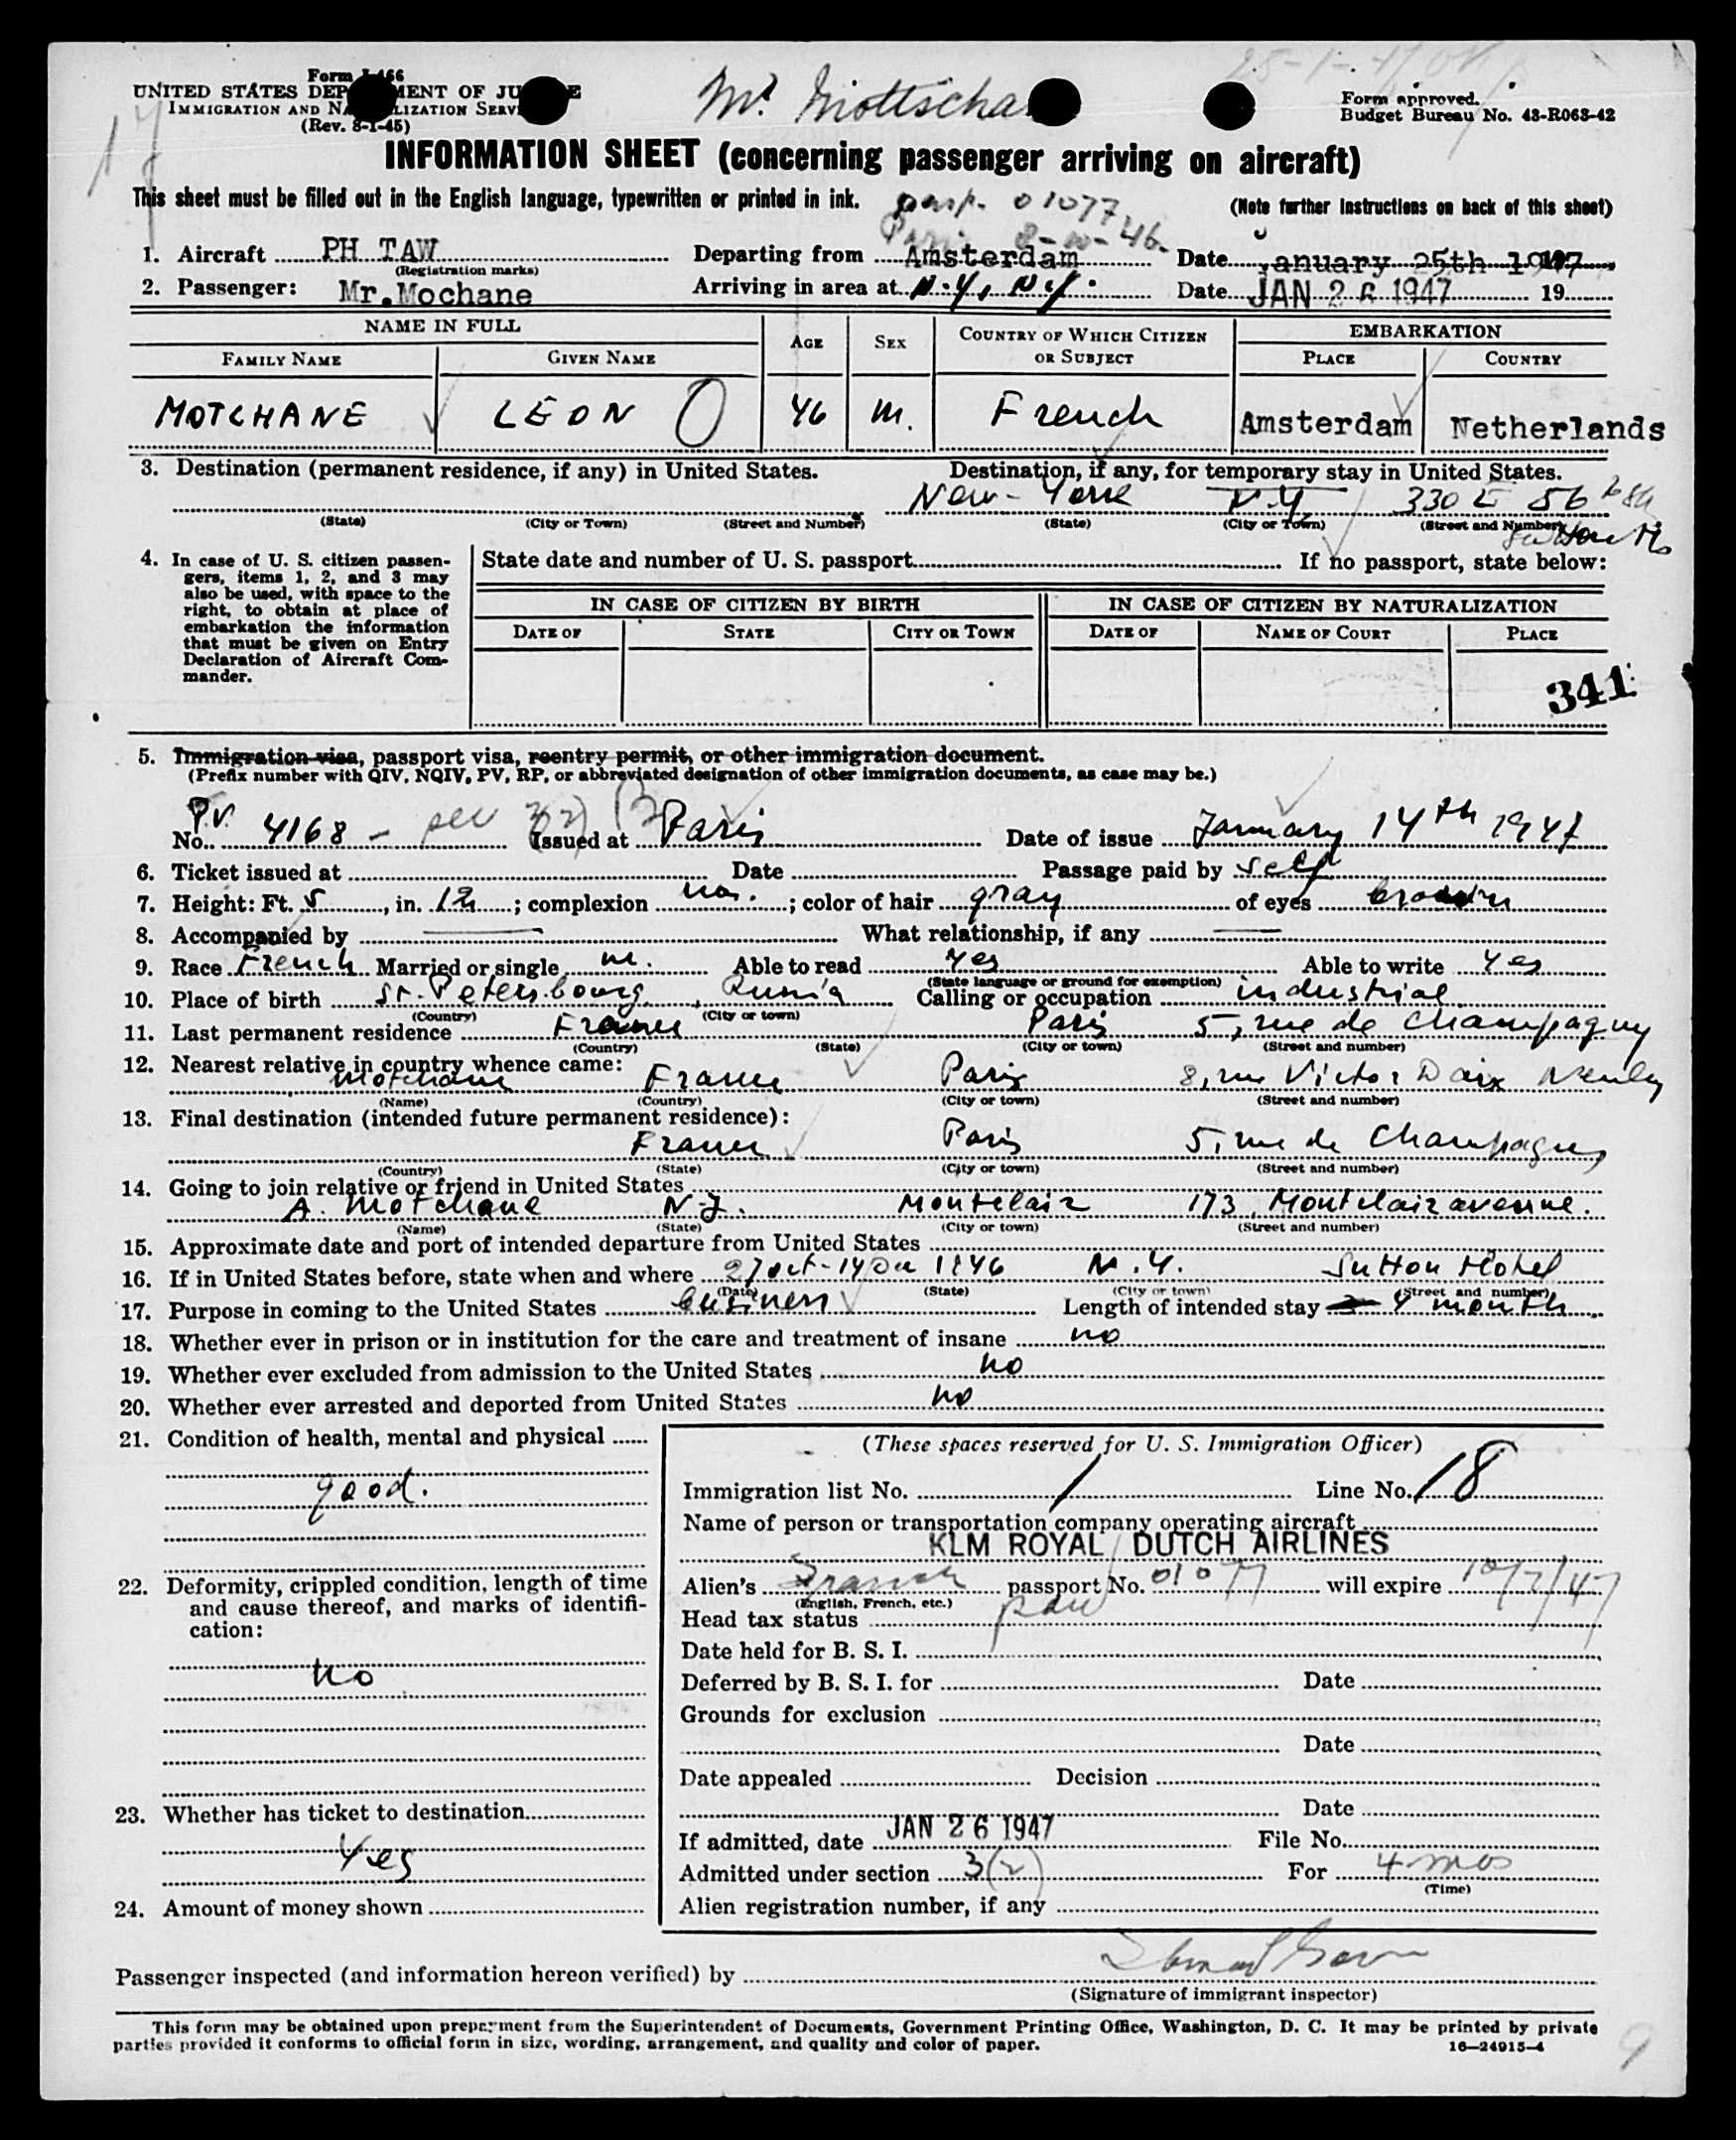 Form I-466
UNITED STATES DEPARTMENT OF JUSTICE
IMMIGRATION AND NATURALIZATION SERVICE
(Rev. 8-1-45)
Mr.
Form approved.
Budget Bureau No. 43-R063-42
INFORMATION SHEET (concerning passenger arriving on aircraft)
This sheet must be filled out in the English language, typewritten or printed in ink.
pasp. 01077
(Note further instructions on back of this sheet)
Paris 8-10-46.
1. Aircraft PH TAW Departing from Amsterdam Date January 25th 1947
(Registration marks)
2. Passenger: Mr.Mochane Arriving in area at N.Y., N.Y. Date JAN 26 1947 19
NAME IN FULL AGE SEX COUNTRY OF WHICH CITIZEN OR SUBJECT EMBARKATION
FAMILY NAME GIVEN NAME PLACE COUNTRY
MOTCHANE LEON 46 M. French Amsterdam Netherlands
3. Destination (permanent residence, if any) in United States. Destination, if any, for temporary stay in United States.
New-York N.Y. 330 E 56
(State) (City or Town) (Street and Number) (State) (City or Town) (Street and Number)
4. In case of U. S. citizen passen-
gers, items 1, 2, and 3 may
also be used, with space to the
right, to obtain at place of
embarkation the information
that must be given on Entry
Declaration of Aircraft Com-
mander.
State date and number of U. S. passport If no passport, state below:
IN CASE OF CITIZEN BY BIRTH IN CASE OF CITIZEN BY NATURALIZATION
DATE OF STATE CITY OR TOWN DATE OF NAME OF COURT PLACE
341
5. Immigration visa, passport visa, reentry permit, or other immigration document.
(Prefix number with QIV, NQIV, PV, RP, or abbreviated designation of other immigration documents, as case may be.)
P.V.
No. 4168 - sec 3(2) Issued at Paris Date of issue January 14th 1947
6. Ticket issued at Date Passage paid by self
7. Height: Ft. 5, in. ; complexion ; color of hair gray of eyes brown
8. Accompanied by What relationship, if any
9. Race French Married or single m. Able to read Yes Able to write Yes
(State language or ground for exemption)
10. Place of birth St. Petersbourg, Russia Calling or occupation industrial
(Country) (City or town)
11. Last permanent residence France Paris 5, rue de Champagny
(Country) (State) (City or town) (Street and number)
12. Nearest relative in country whence came:
Motchane France Paris 8, rue Victor Daix
(Name) (Country) (City or town) (Street and number)
13. Final destination (intended future permanent residence):
France Paris 5, rue de Champagny
(Country) (State) (City or town) (Street and number)
14. Going to join relative or friend in United States
A. Motchane N-J. Montclair 173, Montclair avenue.
(Name) (State) (City or town) (Street and number)
15. Approximate date and port of intended departure from United States
16. If in United States before, state when and where 27 oct-14 Dec 1946 N.Y. Sutton Hotel
(Date) (State) (City or town) (Street and number)
17. Purpose in coming to the United States business Length of intended stay 4 month
18. Whether ever in prison or in institution for the care and treatment of insane no
19. Whether ever excluded from admission to the United States no
20. Whether ever arrested and deported from United States no
21. Condition of health, mental and physical
good.
22. Deformity, crippled condition, length of time
and cause thereof, and marks of identifi-
cation:
no
23. Whether has ticket to destination
Yes
24. Amount of money shown
(These spaces reserved for U. S. Immigration Officer)
Immigration list No. 1 Line No. 18
Name of person or transportation company operating aircraft
KLM ROYAL DUTCH AIRLINES
Alien's French passport No. 01077 will expire 10/7/47
(English, French, etc.)
Head tax status
Date held for B. S. I.
Deferred by B. S. I. for Date
Grounds for exclusion
Date
Date appealed Decision
Date
If admitted, date JAN 26 1947 File No.
Admitted under section 3(2) For 4 mos
(Time)
Alien registration number, if any
Passenger inspected (and information hereon verified) by
(Signature of immigrant inspector)
This form may be obtained upon prepayment from the Superintendent of Documents, Government Printing Office, Washington, D. C. It may be printed by private
parties provided it conforms to official form in size, wording, arrangement, and quality and color of paper.
16—24915-4
9